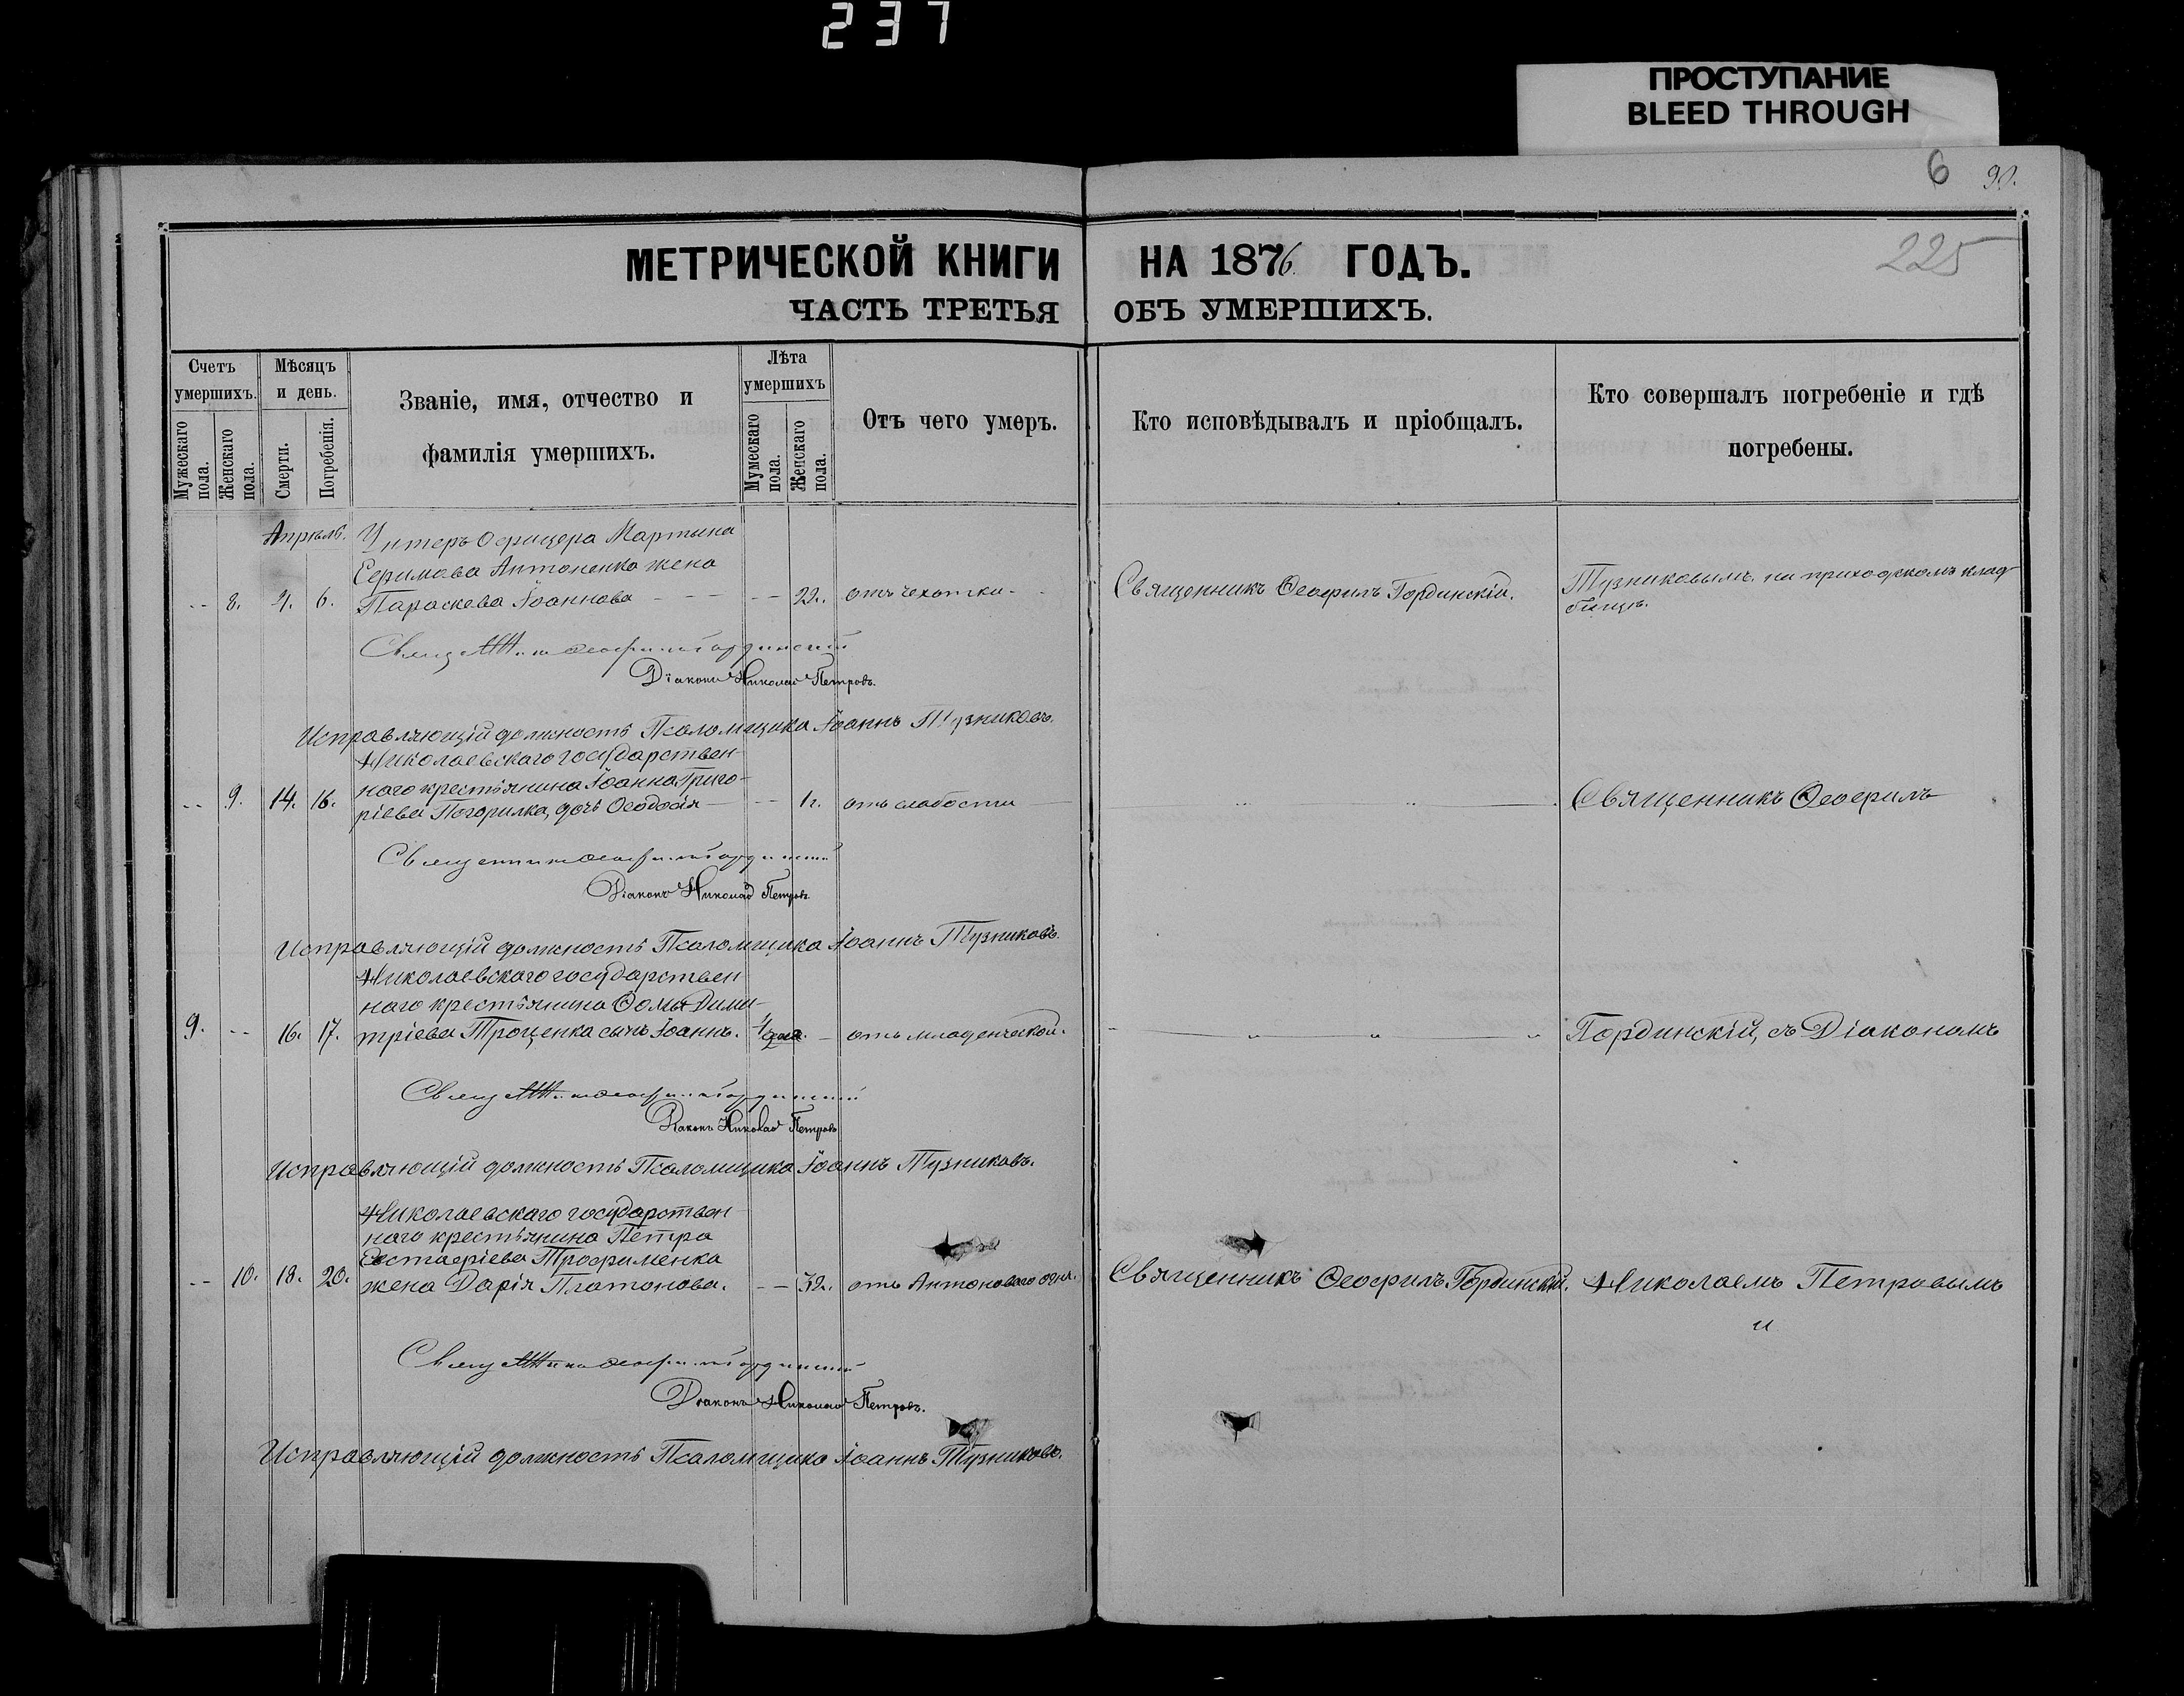 237
ПРОСТУПАНИЕ
BLEED THROUGH
6 90.
225
МЕТРИЧЕСКОЙ КНИГИ НА 1876 ГОДЪ.
ЧАСТЬ ТРЕТЬЯ ОБЪ УМЕРШИХЪ.
Счетъ умершихъ.
Мужескаго пола.
Женскаго пола.
Мѣсяцъ и день.
Смерти.
Погребенія.
Званіе, имя, отчество и
фамилія умершихъ.
Лѣта умершихъ
Мужескаго пола.
Женскаго пола.
Отъ чего умеръ.
Кто исповѣдывалъ и пріобщалъ.
Кто совершалъ погребеніе и гдѣ
погребены.
Апрѣль. Унтеръ Офицера Мартына
Ефимова Антоненко жена
-- 8. 4. 6. Параскева Іоаннова - - - -- 22. отъ чахотки. Священникъ Ѳеофилъ Гординскій. Тузниковымъ на приходскомъ клад-
бищѣ.
Священникъ Ѳеофилъ Гординскій
Діаконъ Николай Петровъ.
Исправляющій должность Псаломщика Іоаннъ Тузниковъ.
Николаевскаго государствен-
наго крестьянина Іоанна Григо-
-- 9. 14. 16. ріева Погорилка, дочь Ѳеодосія -- 1г. отъ слабости Священникъ Ѳеофилъ
Священникъ Ѳеофилъ Гординскій
Діаконъ Николай Петровъ.
Исправляющій должность Псаломщика Іоаннъ Тузниковъ.
Николаевскаго государствен-
наго крестьянина Ѳомы Дими-
9. -- 16. 17. тріева Троценка сынъ Іоаннъ. - отъ младенческой. " " " Гординскій, съ Діакономъ
Священникъ Ѳеофилъ Гординскій
Діаконъ Николай Петровъ
Исправляющій должность Псаломщика Іоаннъ Тузниковъ.
Николаевскаго государствен-
наго крестьянина Петра
Евстафіева Трофименка
-- 10. 18. 20. жена Дарія Платонова. -- 32. отъ Антонова огня. Священникъ Ѳеофилъ Гординскій. Николаемъ Петровымъ
и
Священникъ Ѳеофилъ Гординскій
Діаконъ Николай Петровъ.
Исправляющій должность Псаломщика Іоаннъ Тузниковъ.